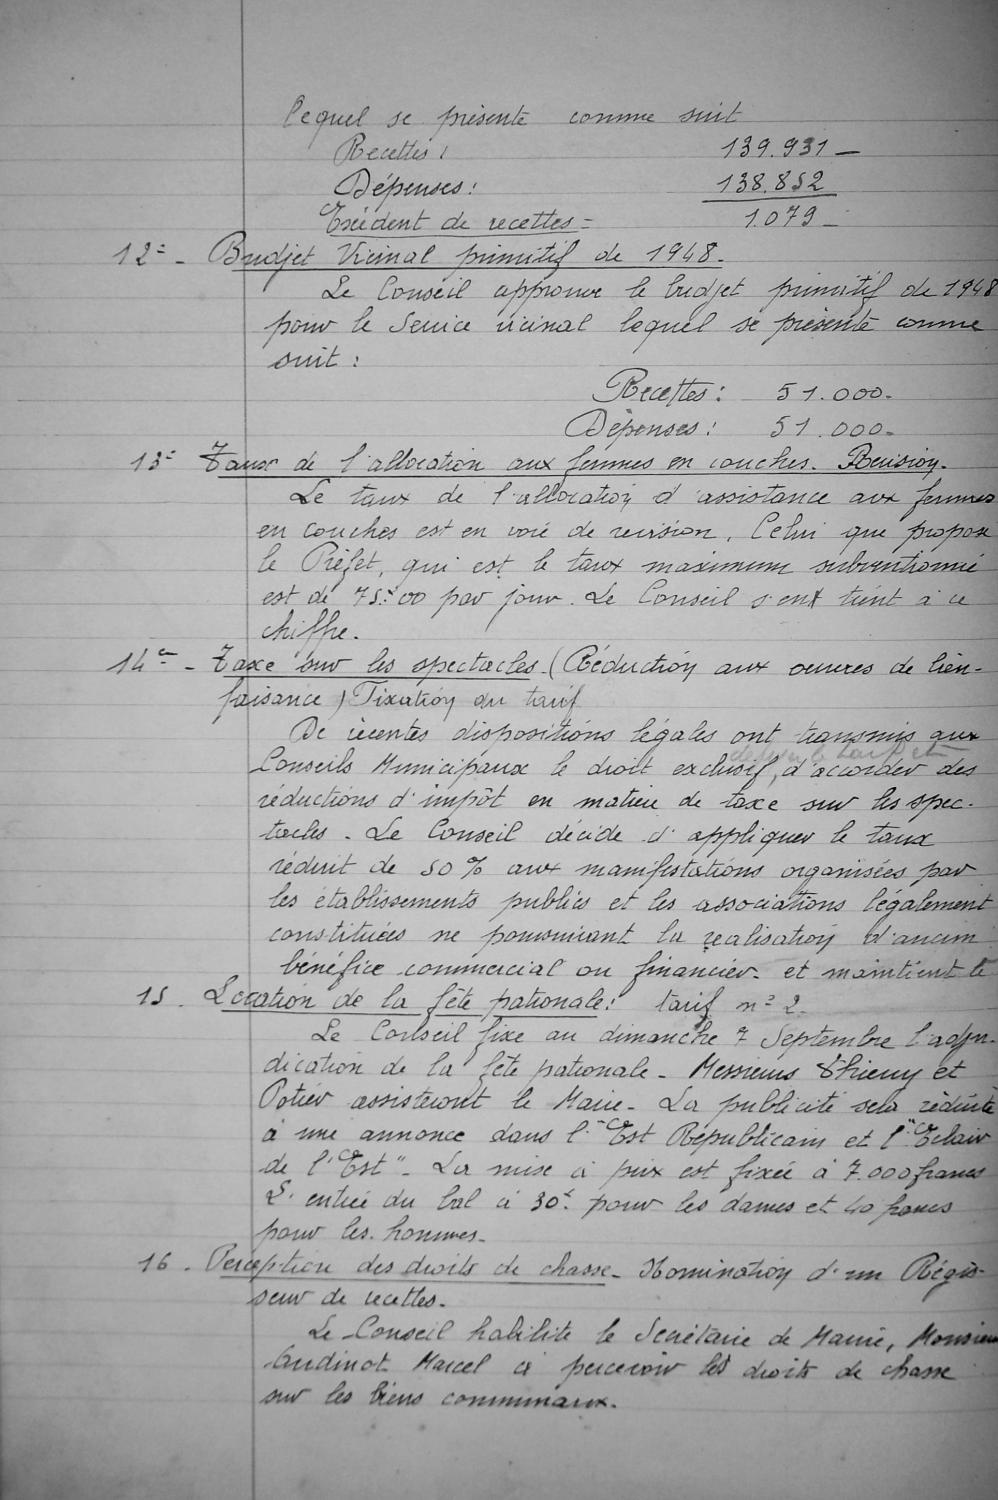 lequel se présente comme suit
Recettes : 139.931 —
Dépenses : 138.852
Excédent de recettes = 1.079 —
12° - Budjet Vicinal primitif de 1948.
Le Conseil approuve le budjet primitif de 1948
pour le Service vicinal lequel se présente comme
suit :
Recettes : 51.000.
Dépenses : 51.000.
13° Taux de l'allocation aux femmes en couches. Revision.
Le taux de l'allocation d'assistance aux femmes
en couches est en voie de revision. Celui que propose
le Préfet, qui est le taux maximum subventionné
est de 75.f00 par jour. Le Conseil s'en tient à ce
chiffre.
14° - Taxe sur les spectacles. (Réduction aux oeuvres de bien-
faisance) Fixation du tarif
De récentes dispositions légales ont transmis aux
Conseils Municipaux le droit exclusif, d'accorder des
réductions d'impôt en matière de taxe sur les spec-
tacles. Le Conseil décide d'appliquer le taux
réduit de 50 % aux manifestations organisées par
les établissements publics et les associations légalement
constituées ne poursuivant la realisation d'aucun
bénéfice commercial ou financier. et maintient le
tarif n° 2.
15. Location de la fête patronale :
Le Conseil fixe au dimanche 7 Septembre l'adju-
dication de la fête patronale. Messieurs Thierry et
Potier assisteront le Maire. La publicité sera réduite
à une annonce dans l'"Est Républicain et l'"Eclair
de l'Est". La mise à prix est fixée à 7.000 francs
L'entrée du bal à 30f. pour les dames et 40 francs
pour les hommes.
16. Perception des droits de chasse. Nomination d'un Régis-
seur de recettes.
Le Conseil habilite le Secrétaire de Mairie, Monsieur
Audinot Marcel à percevoir les droits de chasse
sur les biens communaux.